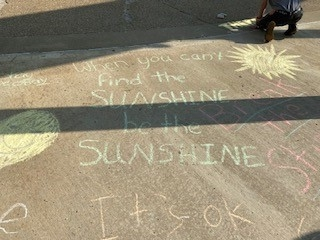 When you can't
find the
SUNSHINE
be the
SUNSHINE
It's ok